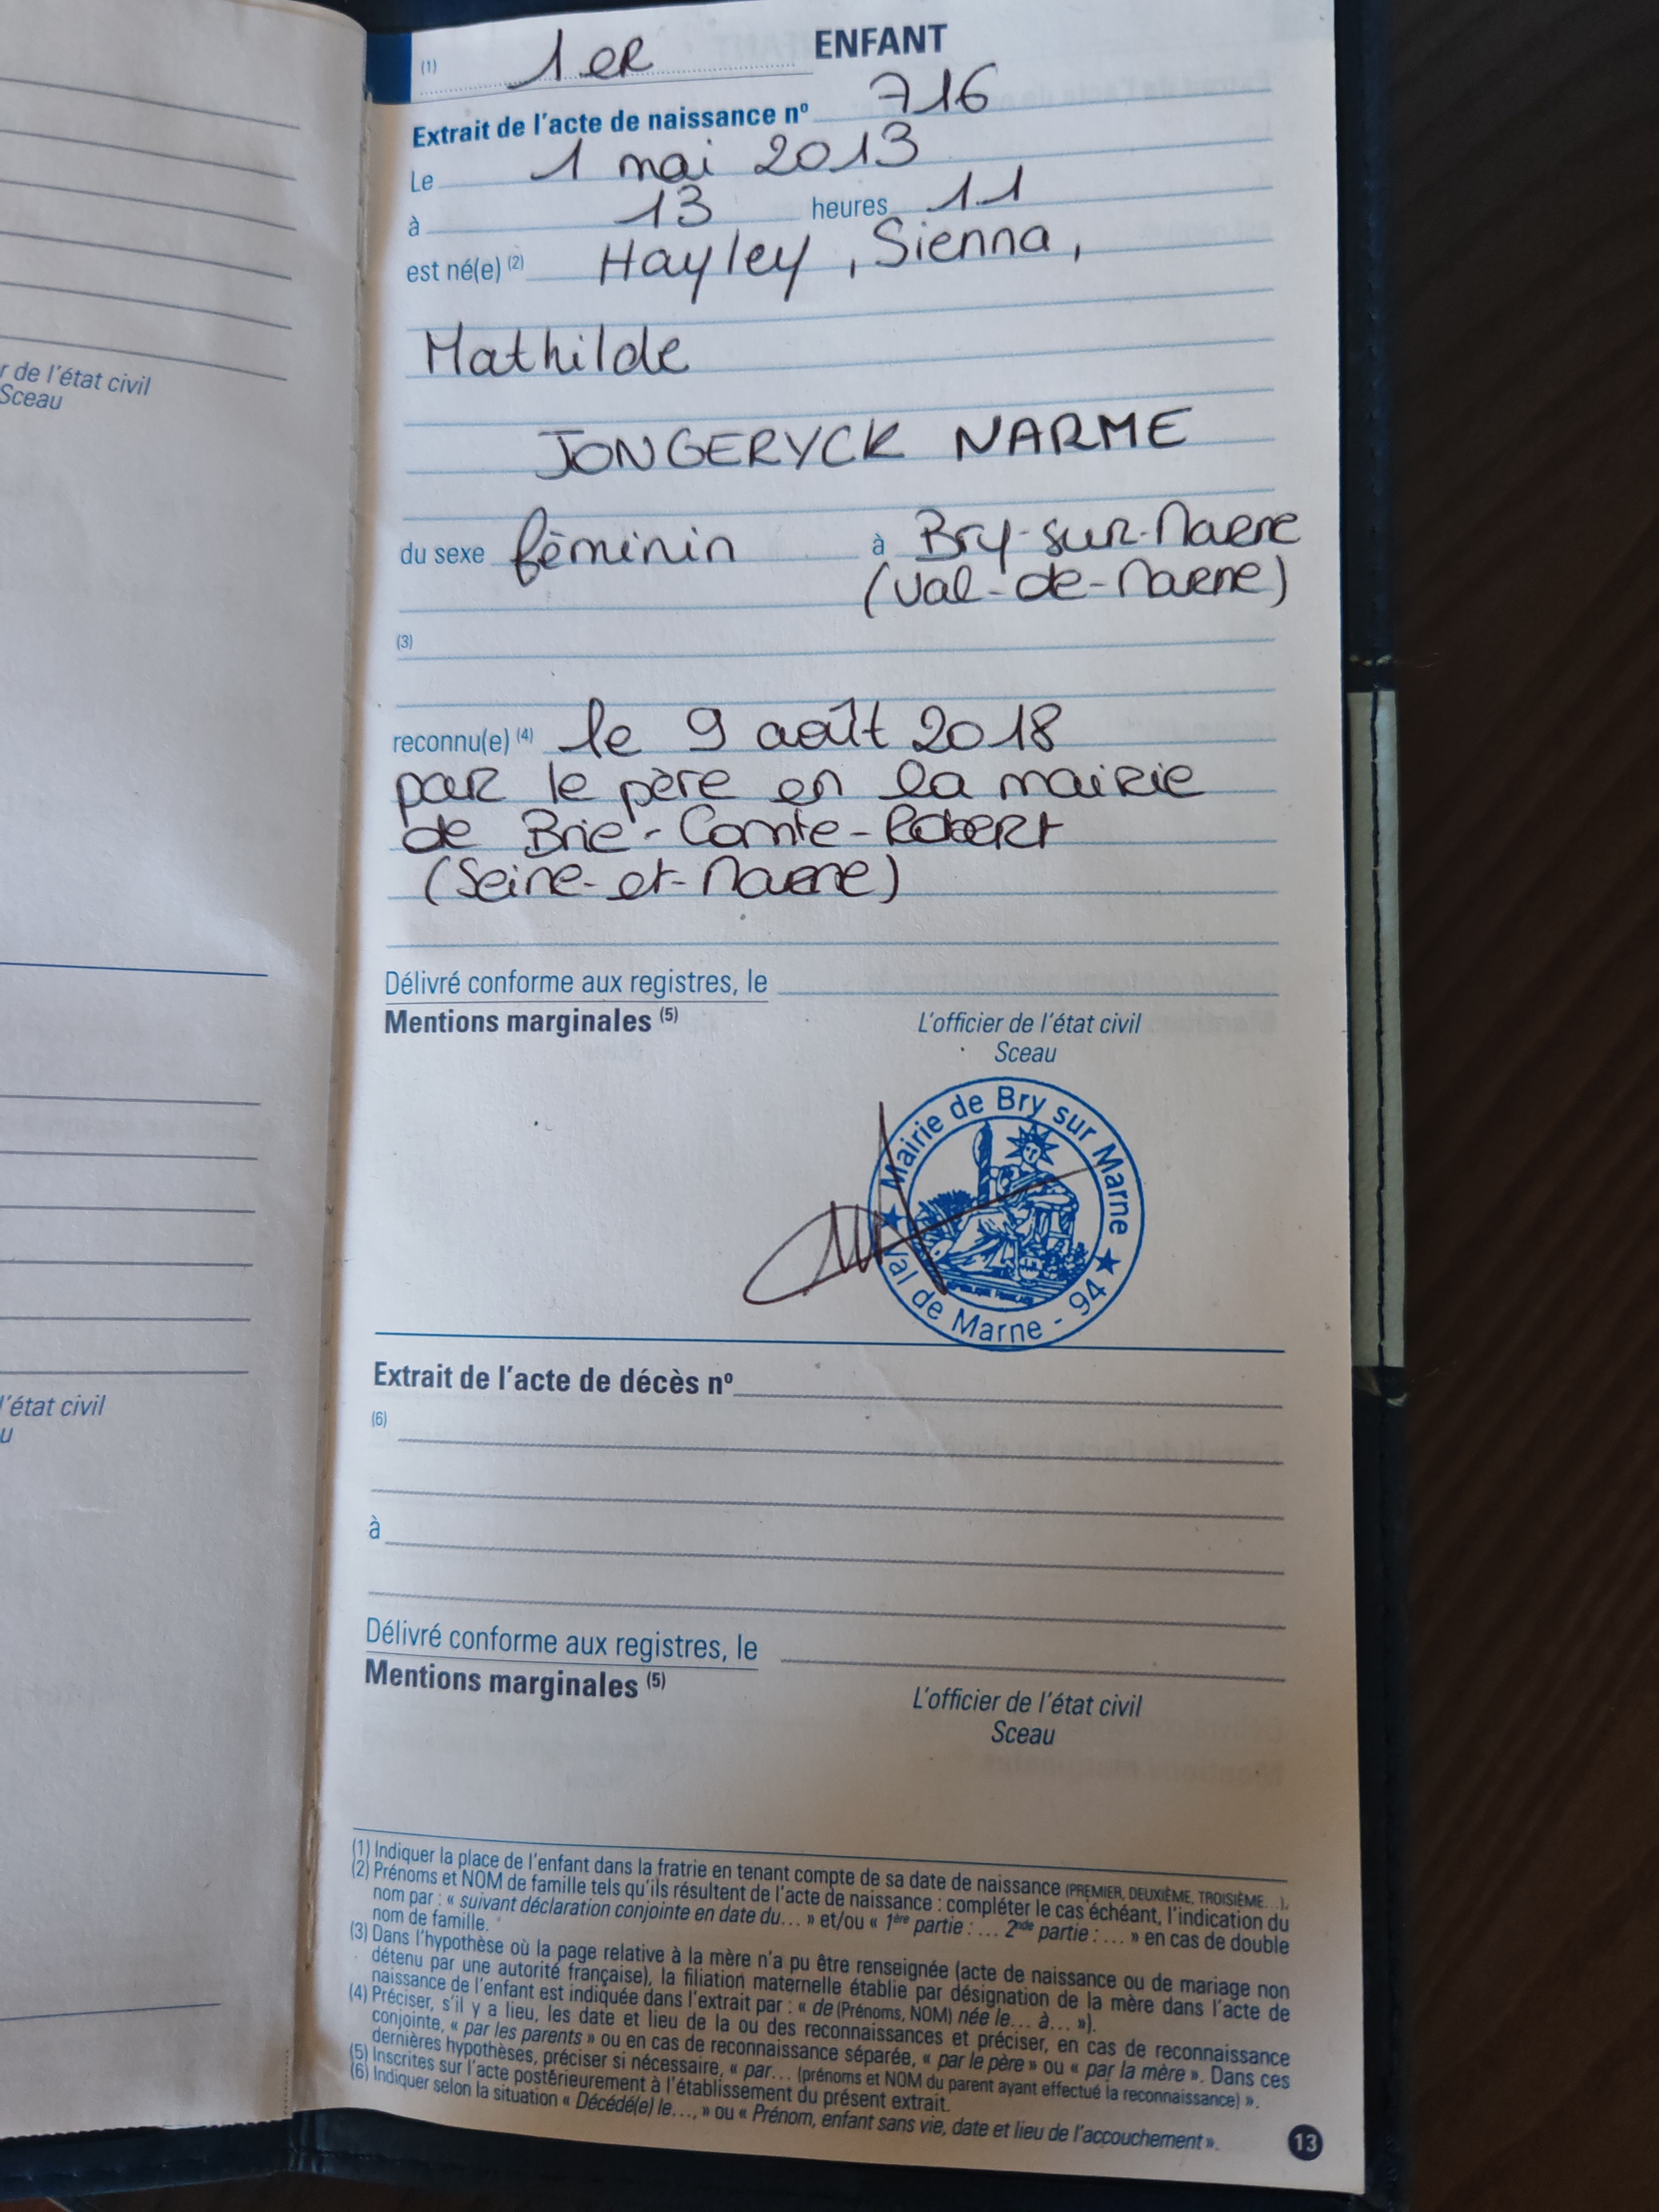 r de l'état civil
Sceau
l'état civil
u
(1) 1er ENFANT
Extrait de l'acte de naissance nº 716
Le 1 mai 2013
à 13 heures 11
est né(e) (2) Hayley, Sienna,
Mathilde
JONGERYCK NARME
du sexe féminin à Bry-sur-Marne
(Val-de-Marne)
(3)
reconnu(e) (4) le 9 août 2018
par le père en la mairie
de Brie-Comte-Robert
(Seine-et-Marne)
Délivré conforme aux registres, le
Mentions marginales (5)
L'officier de l'état civil
Sceau
Mairie de Bry sur Marne
Val de Marne - 94
Extrait de l'acte de décès nº
(6)
à
Délivré conforme aux registres, le
Mentions marginales (5)
L'officier de l'état civil
Sceau
(1) Indiquer la place de l'enfant dans la fratrie en tenant compte de sa date de naissance (PREMIER, DEUXIÈME, TROISIÈME...).
(2) Prénoms et NOM de famille tels qu'ils résultent de l'acte de naissance : compléter le cas échéant, l'indication du
nom par : « suivant déclaration conjointe en date du... » et/ou « 1ère partie : ... 2nde partie : ... » en cas de double
nom de famille.
(3) Dans l'hypothèse où la page relative à la mère n'a pu être renseignée (acte de naissance ou de mariage non
détenu par une autorité française), la filiation maternelle établie par désignation de la mère dans l'acte de
naissance de l'enfant est indiquée dans l'extrait par : « de (Prénoms, NOM) née le... à... »).
(4) Préciser, s'il y a lieu, les date et lieu de la ou des reconnaissances et préciser, en cas de reconnaissance
conjointe, « par les parents » ou en cas de reconnaissance séparée, « par le père » ou « par la mère ». Dans ces
dernières hypothèses, préciser si nécessaire, « par... (prénoms et NOM du parent ayant effectué la reconnaissance) ».
(5) Inscrites sur l'acte postérieurement à l'établissement du présent extrait.
(6) Indiquer selon la situation « Décédé(e) le..., » ou « Prénom, enfant sans vie, date et lieu de l'accouchement ».
13